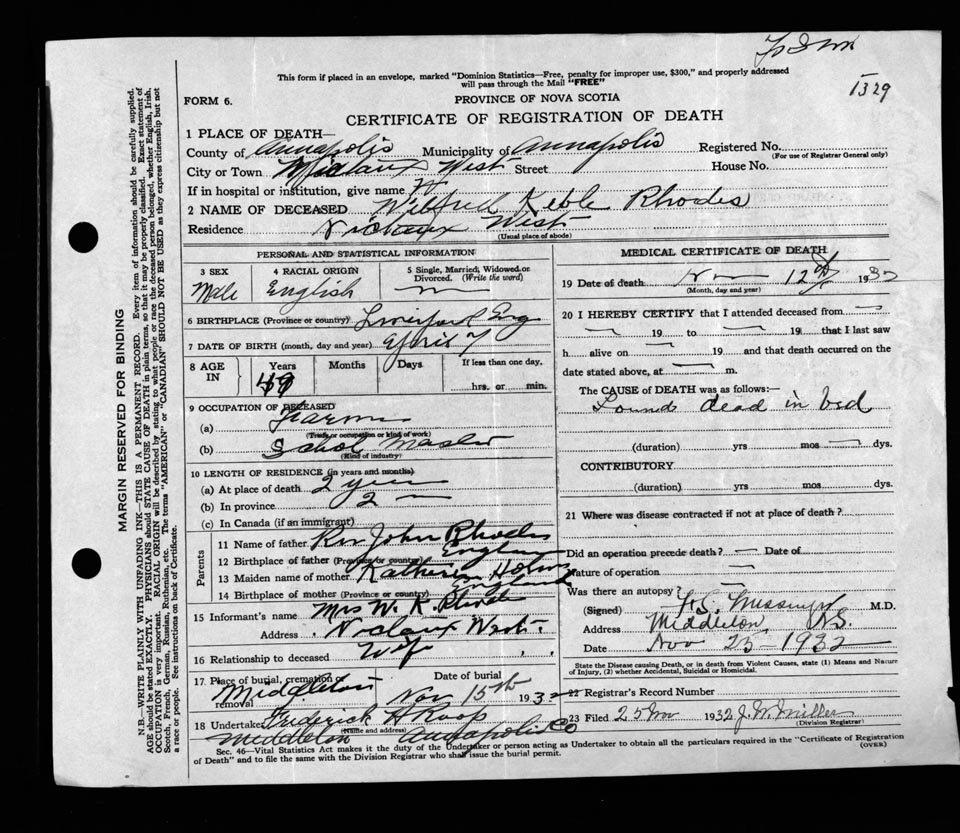 This form if placed in an envelope, marked "Dominion Statistics—Free, penalty for improper use, $300," and properly addressed
will pass through the Mail "FREE"
1329
FORM 6.
PROVINCE OF NOVA SCOTIA
CERTIFICATE OF REGISTRATION OF DEATH
1 PLACE OF DEATH—
County of Annapolis Municipality of Annapolis Registered No.
(For use of Registrar General only)
City or Town West Street House No.
If in hospital or institution, give name
2 NAME OF DECEASED Wilfred Keble Rhodes
Residence Nictaux West
(Usual place of abode)
PERSONAL AND STATISTICAL INFORMATION
3 SEX 4 RACIAL ORIGIN 5 Single, Married, Widowed or
Divorced. (Write the word)
Male English
6 BIRTHPLACE (Province or country) Liverpool Eng
7 DATE OF BIRTH (month, day and year) April 7
8 AGE IN Years Months Days If less than one day,
49 hrs. or min.
9 OCCUPATION OF DECEASED
(a) Farm
(Trade or occupation or kind of work)
(b) School Master
(Kind of industry)
10 LENGTH OF RESIDENCE (in years and months)
(a) At place of death 2 years
(b) In province 2 —
(c) In Canada (if an immigrant)
Parents
11 Name of father Rev John Rhodes
12 Birthplace of father (Province or country) England
13 Maiden name of mother Katherine
14 Birthplace of mother (Province or country) England
15 Informant's name Mrs W. K. Rhodes
Address Nictaux West
16 Relationship to deceased Wife
17 Place of burial, cremation or removal Middleton Date of burial Nov 15th 1932
18 Undertaker Frederick H Roop
(Name and address)
Middleton Annapolis Co
MEDICAL CERTIFICATE OF DEATH
19 Date of death 12 1932
(Month, day and year)
20 I HEREBY CERTIFY that I attended deceased from —
— 19 to — 19 that I last saw
h alive on — 19 and that death occurred on the
date stated above, at — m.
The CAUSE OF DEATH was as follows:—
Found dead in bed
(duration) yrs mos — dys.
CONTRIBUTORY
(duration) yrs mos dys.
21 Where was disease contracted if not at place of death?
Did an operation precede death? — Date of
Nature of operation —
Was there an autopsy? —
(Signed) M.D.
Address Middleton, N.S.
Date Nov 23 - 1932
State the Disease causing Death, or in death from Violent Causes, state (1) Means and Nature
of Injury, (2) whether Accidental, Suicidal or Homicidal.
22 Registrar's Record Number
23 Filed 25 1932 J. W. Miller
(Division Registrar)
Sec. 46—Vital Statistics Act makes it the duty of the Undertaker or person acting as Undertaker to obtain all the particulars required in the "Certificate of Registration
of Death" and to file the same with the Division Registrar who shall issue the burial permit.
(OVER)
MARGIN RESERVED FOR BINDING
N.B.—WRITE PLAINLY WITH UNFADING INK—THIS IS A PERMANENT RECORD. Every item of information should be carefully supplied.
AGE should be stated EXACTLY. PHYSICIANS should STATE CAUSE OF DEATH in plain terms, so that it may be properly classified. Exact statement of
OCCUPATION is very important. RACIAL ORIGIN will be described by stating to what people or race the deceased person belonged, whether English, Irish,
Scotch, French, German, Russian, Ruthenian, etc. The terms "AMERICAN" or "CANADIAN" SHOULD NOT BE USED as they express citizenship but not
a race or people. See instructions on back of Certificate.